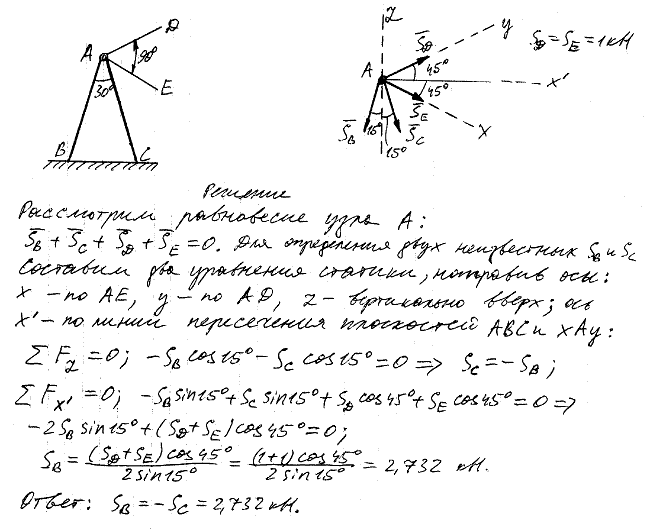 D
A
90°
30°
E
B
C
z
y
S̅_D
S_D = S_E = 1 кН
A
45°
x'
45°
S̅_E
x
S̅_B
15°
S̅_C
15°
Решение
Рассмотрим равновесие узла A:
S̅_B + S̅_C + S̅_D + S̅_E = 0. Для определения двух неизвестных S_B и S_C
составим два уравнения статики, направив оси:
x – по AE, y – по AD, z – вертикально вверх; ось
x' – по линии пересечения плоскостей ABC и xAy:
∑ F_z = 0; -S_B cos15° - S_C cos15° = 0 => S_C = -S_B;
∑ F_x' = 0; -S_B sin15° + S_C sin15° + S_D cos45° + S_E cos45° = 0 =>
-2S_B sin15° + (S_D + S_E) cos45° = 0;
S_B = (S_D + S_E) cos45° / 2 sin15° = (1+1) cos45° / 2 sin15° = 2,732 кН.
Ответ: S_B = -S_C = 2,732 кН.